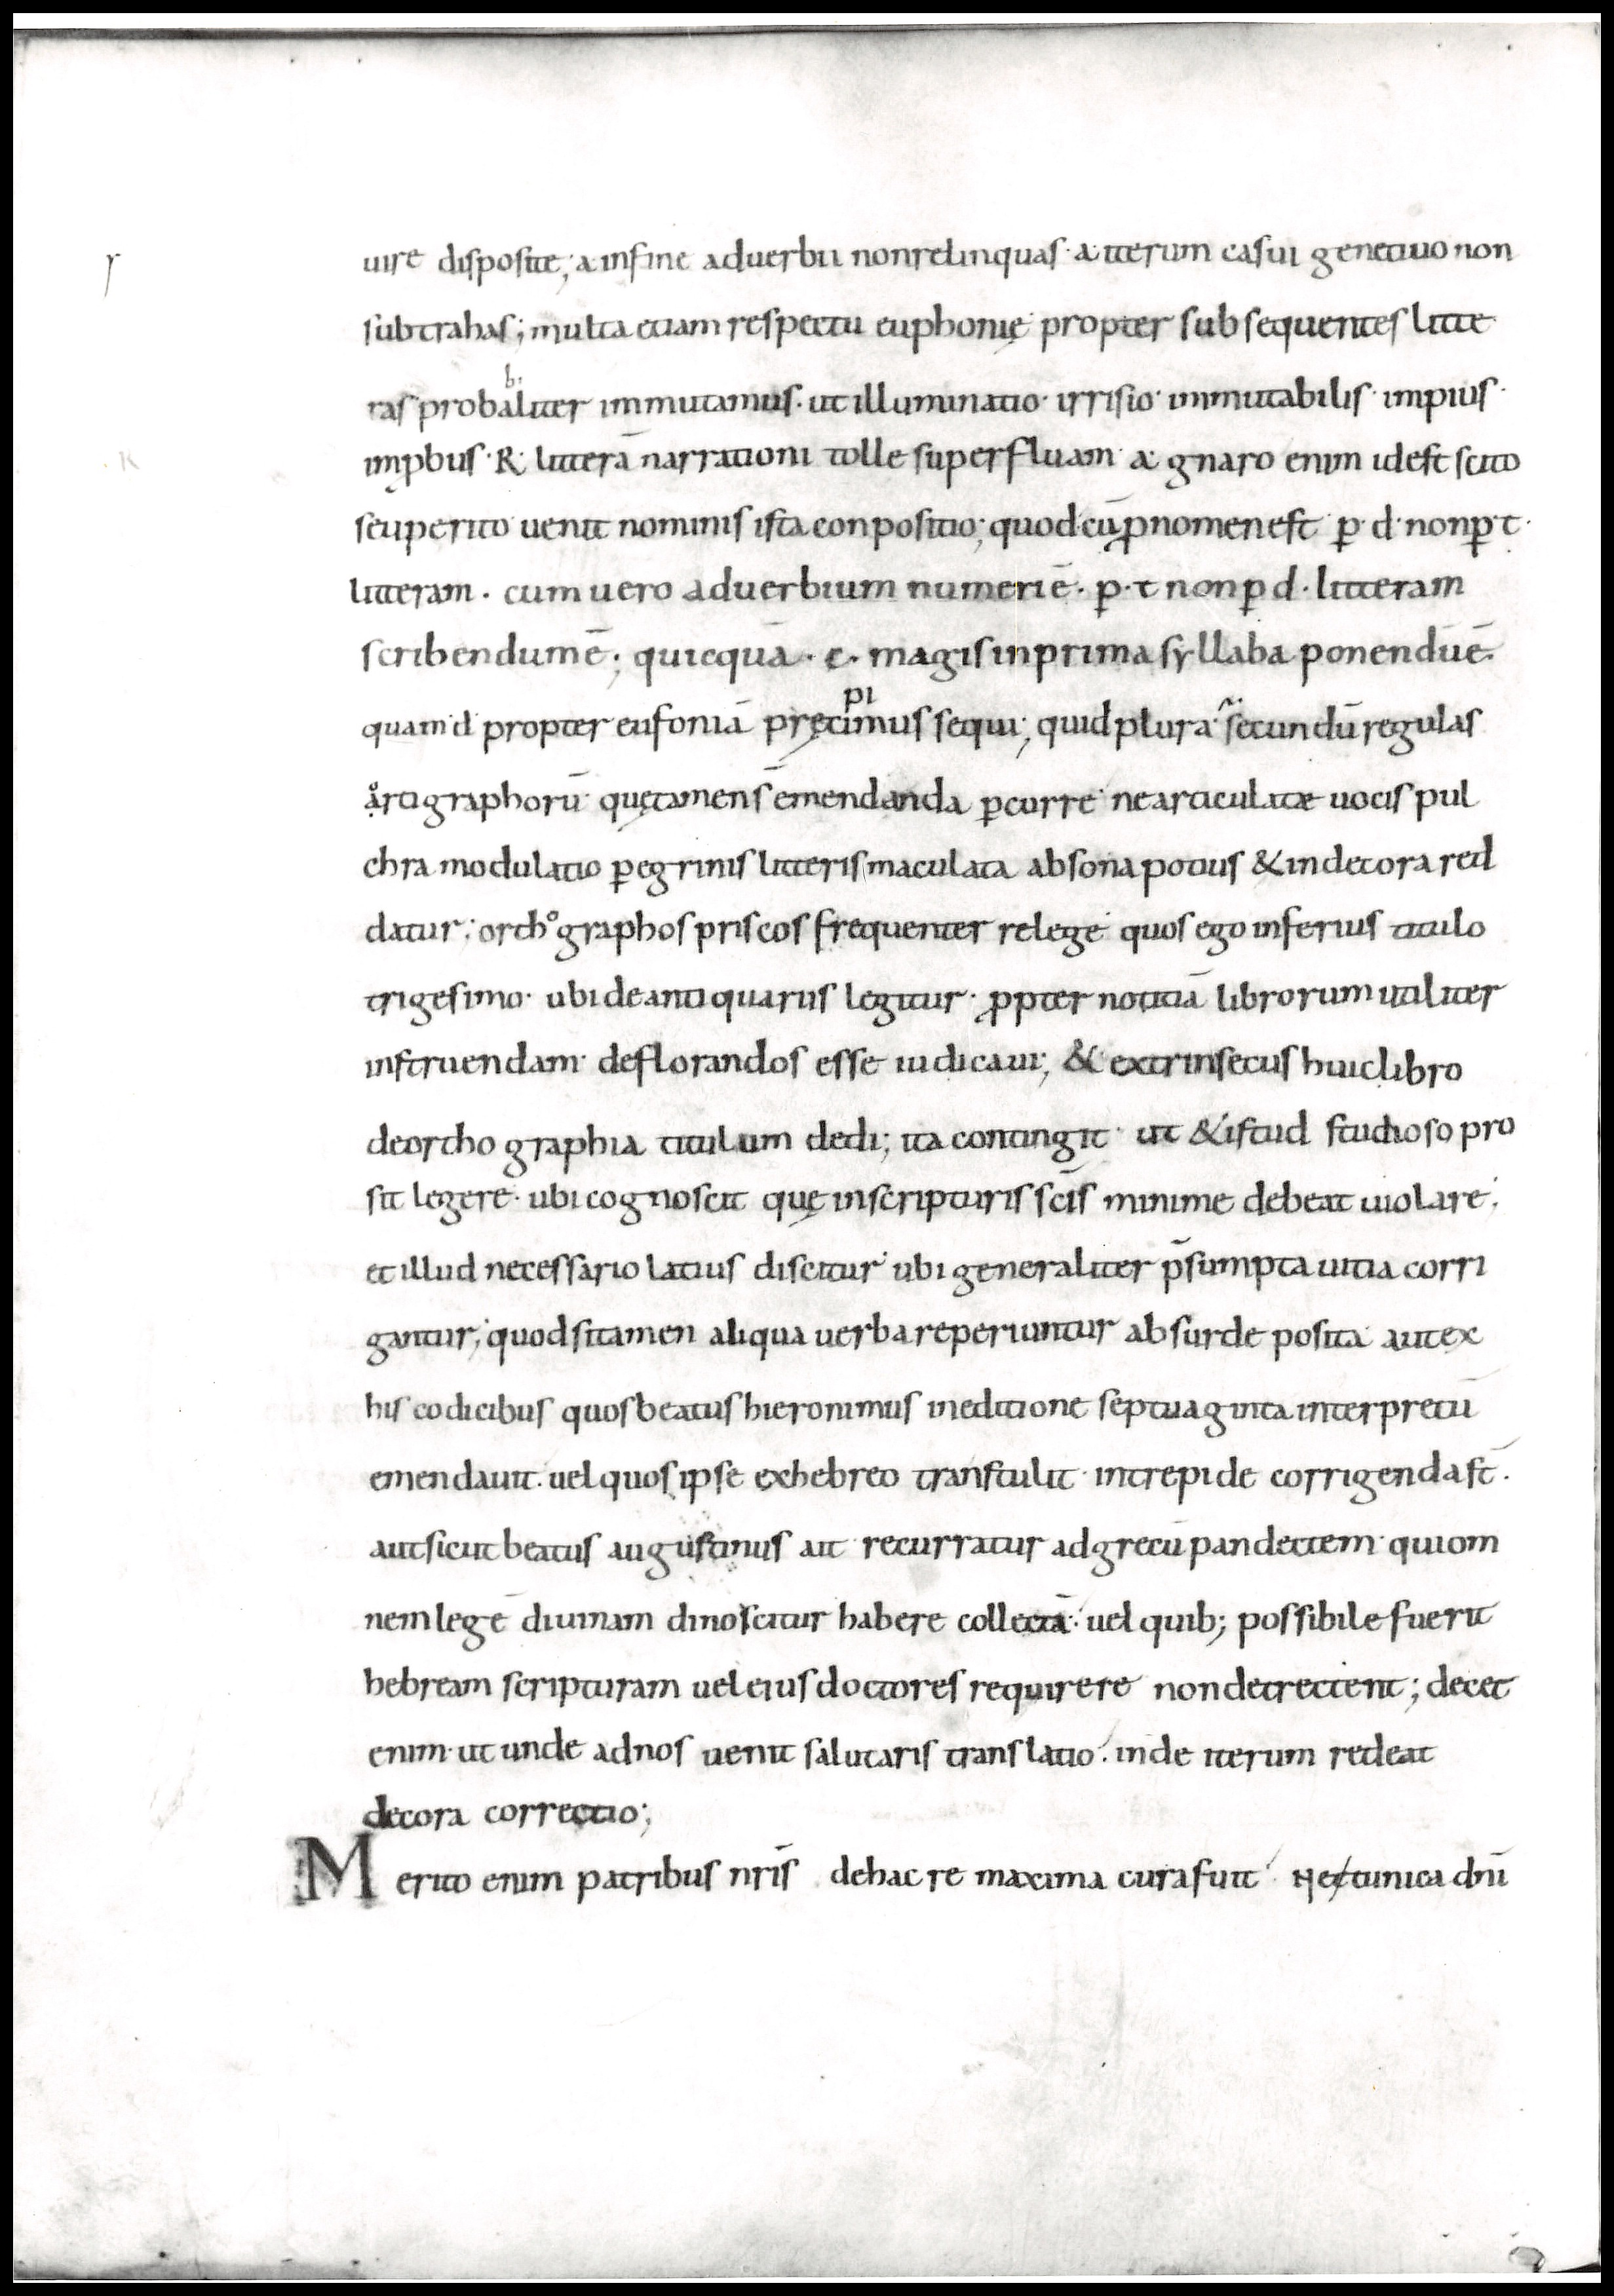 r
uire disposite; a in fine aduerbii non relinquas · a iterum casui genetiuo non
subtrahas; multa etiam respectu euphonię propter subsequentes litte
ras probabiliter immutamus · ut illuminatio · irrisio · immutabilis · impius ·
imp̱bus · R · litterā narrationi tolle superfluam · a gnaro enim idest scito
seu perito uenit nominis ista conpositio; quod cū p̱nomen est p̱ · d · non p̱ · t ·
litteram · cum uero aduerbium numeri ē · p̱ · t non p̱ d · litteram
scribendum ē; quicquā · c · magis in prima syllaba ponendū ē ·
quam d propter eufoniā pręcipimus sequi; quid plura · secundū regulas
artigraphorū quę tamen s̄ emendanda p̱curre · ne articulatæ uocis pul
chra modulatio p̱egrinis litteris maculata absona potius & indecora red
datur; orthographos priscos frequenter relege · quos ego inferius titulo
trigesimo · ubi de antiquariis legitur · p̱pter notitiā librorum utiliter
instruendam · deflorandos esse iudicaui; & extrinsecus huic libro
de orthographia titulum dedi; ita contingit · ut & istud studioso pro
sit legere · ubi cognoscit quę in scripturis scīs minime debeat uiolare;
et illud necessario latius discitur ubi generaliter p̄sumpta uitia corri
gantur; quod si tamen aliqua uerba reperiuntur absurde posita aut ex
his codicibus quos beatus hieronimus in editione septuaginta interpretū
emendauit · uel quos ipse ex hebreo transtulit · intrepide corrigenda st̄ ·
aut sicut beatus augustinus ait recurratur ad grecū pandectem · qui om
nem legē diuinam dinoscitur habere collectā · uel quib; possibile fuerit
hebream scripturam uel eius doctores requirere non detrectent; decet
enim · ut unde ad nos uenit salutaris translatio · inde iterum redeat
decora correctio;
Merito enim patribus nrīs de hac re maxima cura fuit · Ne tunica dnī